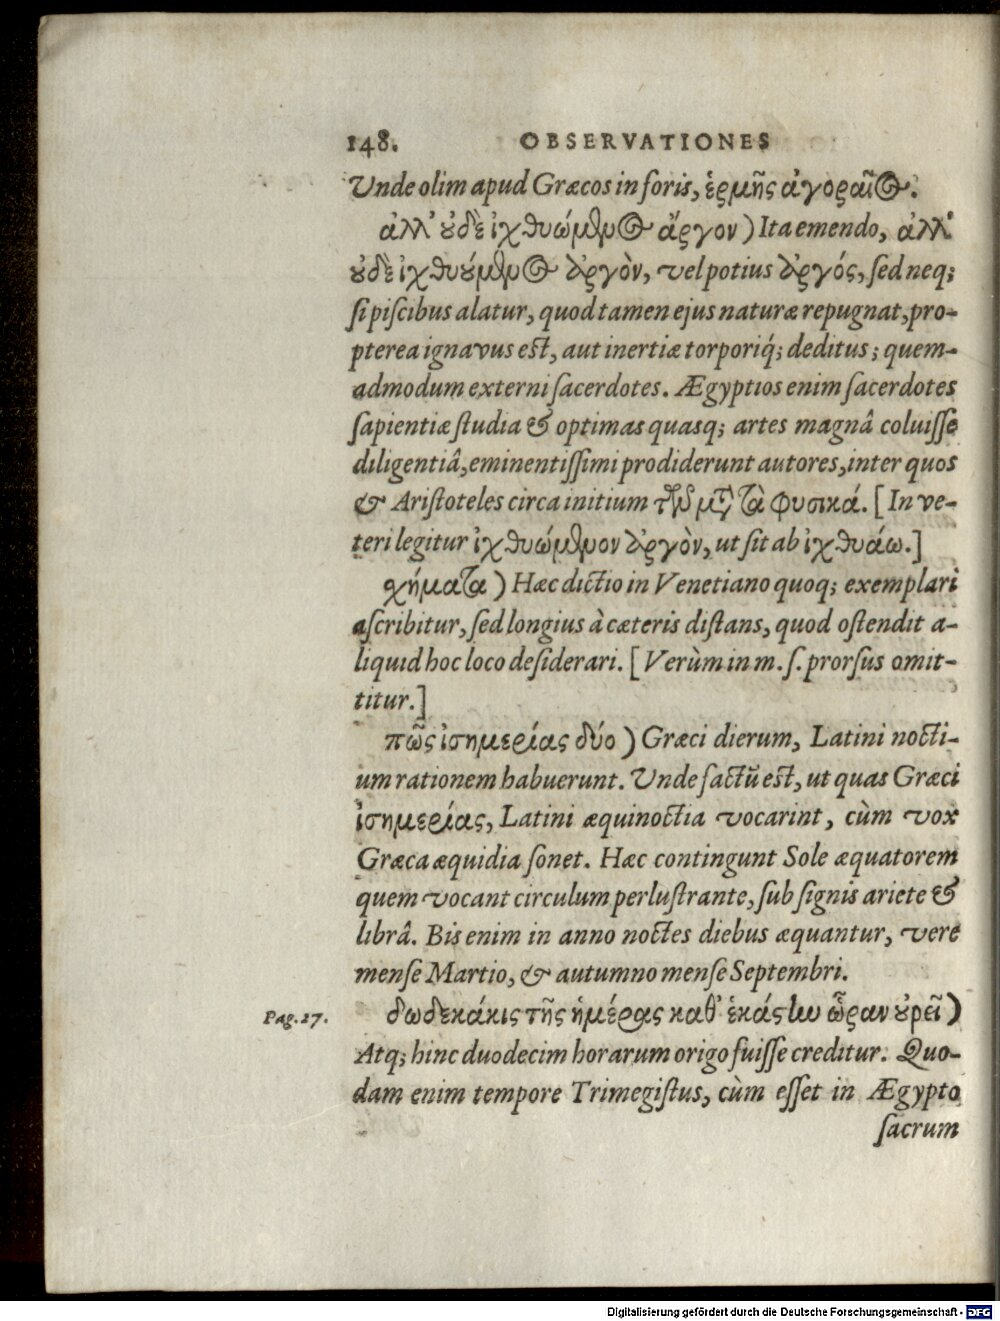 148. OBSERVATIONES
Unde olim apud Græcos in foris, ἑρμῆς ἀγοραῖος.
ἀλλ' οὐδὲ ἰχθυώμενος ἄργον) Ita emendo, ἀλλ'
οὐδὲ ἰχθυούμενος ἀργὸν, vel potius ἀργός, sed neq;
si piscibus alatur, quod tamen ejus naturæ repugnat, pro-
pterea ignavus est, aut inertiæ torporiq́; deditus; quem-
admodum externi sacerdotes. Ægyptios enim sacerdotes
sapientiæ studia & optimas quasq; artes magnâ coluisse
diligentiâ, eminentissimi prodiderunt autores, inter quos
& Aristoteles circa initium τῶν μετὰ τὰ φυσικά. [In ve-
teri legitur ἰχθυώμενον ἀργὸν, ut sit ab ἰχθυάω.]
χήματα) Hæc dictio in Venetiano quoq; exemplari
ascribitur, sed longius à cæteris distans, quod ostendit a-
liquid hoc loco desiderari. [Verùm in m. s. prorsus omit-
titur.]
πῶς ἰσημερίας δύο) Græci dierum, Latini nocti-
um rationem habuerunt. Unde factũ est, ut quas Græci
ἰσημερίας, Latini æquinoctia vocarint, cùm vox
Græca æquidia sonet. Hæc contingunt Sole æquatorem
quem vocant circulum perlustrante, sub signis ariete &
librâ. Bis enim in anno noctes diebus æquantur, vere
mense Martio, & autumno mense Septembri.
Pag. 27. δωδεκάκις τῆς ἡμέρας καθ' ἑκάστην ὧραν οὐρεῖ)
Atq; hinc duodecim horarum origo fuisse creditur. Quo-
dam enim tempore Trimegistus, cùm esset in Ægypto
sacrum
Digitalisierung gefördert durch die Deutsche Forschungsgemeinschaft - DFG